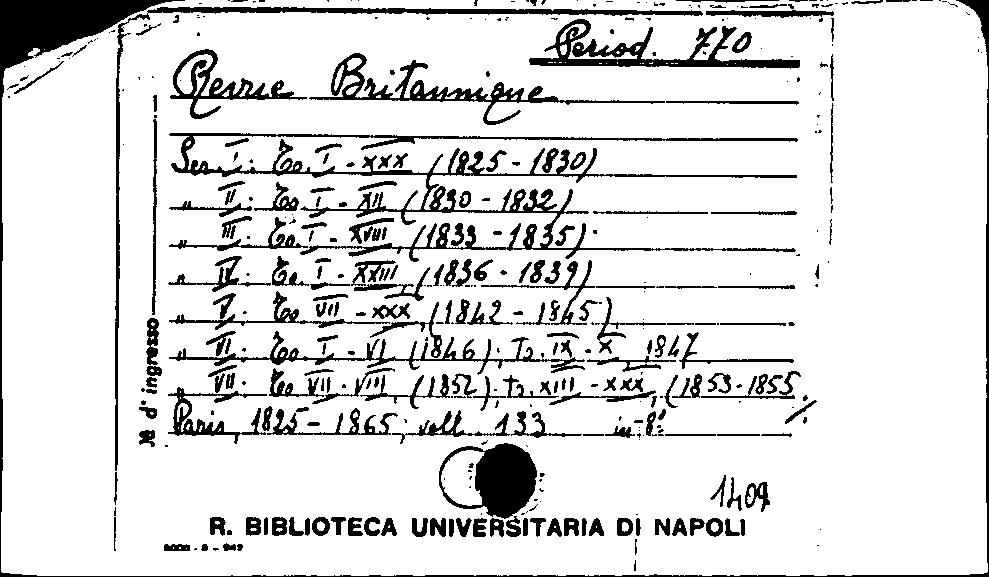 Period. 770
Revue Britannique
Ser. I: To. I - XXX (1825 - 1830)
" II: To. I - XII (1830 - 1832)
" III: To. I - XVIII, (1833 - 1835)
" IV: To. I - XXIII, (1836 - 1839)
" V: To. VII - XXX, (1842 - 1845)
" VI: To. I - VI (1846); To. IX - X, 1847
" VII: To VII - VIII, (1852); To. XIII - XXX, (1853-1855
./.
Paris, 1825 - 1865; voll. 133 in-8°
№ d'ingresso
1409
R. BIBLIOTECA UNIVERSITARIA DI NAPOLI